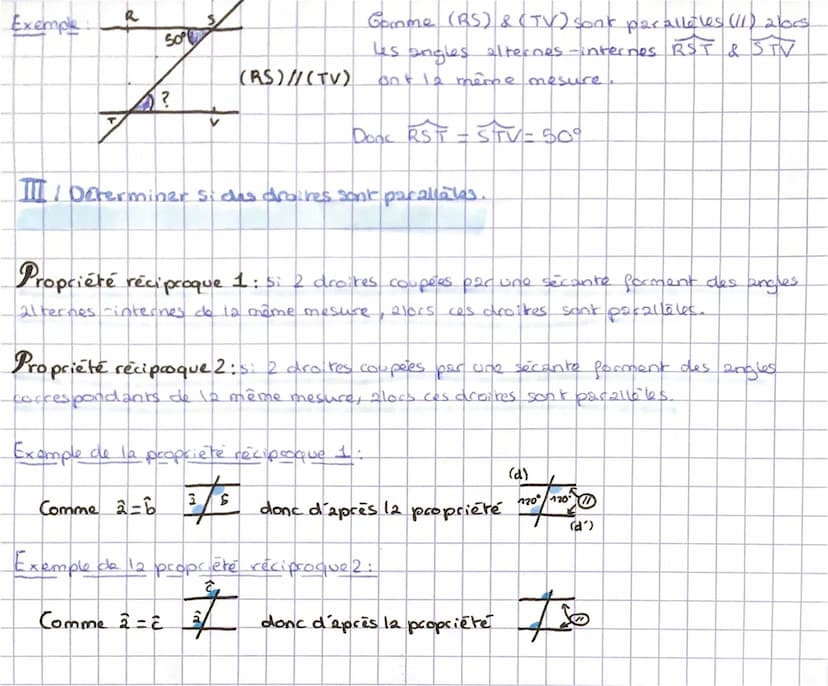 Exemple :
R
S
50°
?
T
V
(RS)//(TV)
Comme (RS) & (TV) sont parallèles (//) alors
les angles alternes-internes RST & STV
ont la même mesure.
Donc RST = STV = 50°
III / Déterminer si des droires sont parallèles.
Propriété réciproque 1 : si 2 droites coupées par une sécante forment des angles
alternes-internes de la même mesure, alors ces droites sont parallèles.
Propriété réciproque 2 : si 2 droites coupées par une sécante forment des angles
correspondants de la même mesure, alors ces droites sont parallèles.
Exemple de la propriété réciproque 1 :
Comme â = b̂
donc d'après la propriété
(d)
120° 120° //
(d')
Exemple de la propriété réciproque 2 :
ĉ
Comme â = ĉ
â
donc d'après la propriété
//